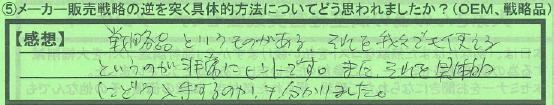 ⑤メーカー販売戦略の逆を突く具体的方法についてどう思われましたか？(OEM、戦略品)
【感想】 戦略品というものがある、それを我々でも使える
というのが非常にヒントです。また、それを具体的
にどう入手するのか、も分かりました。